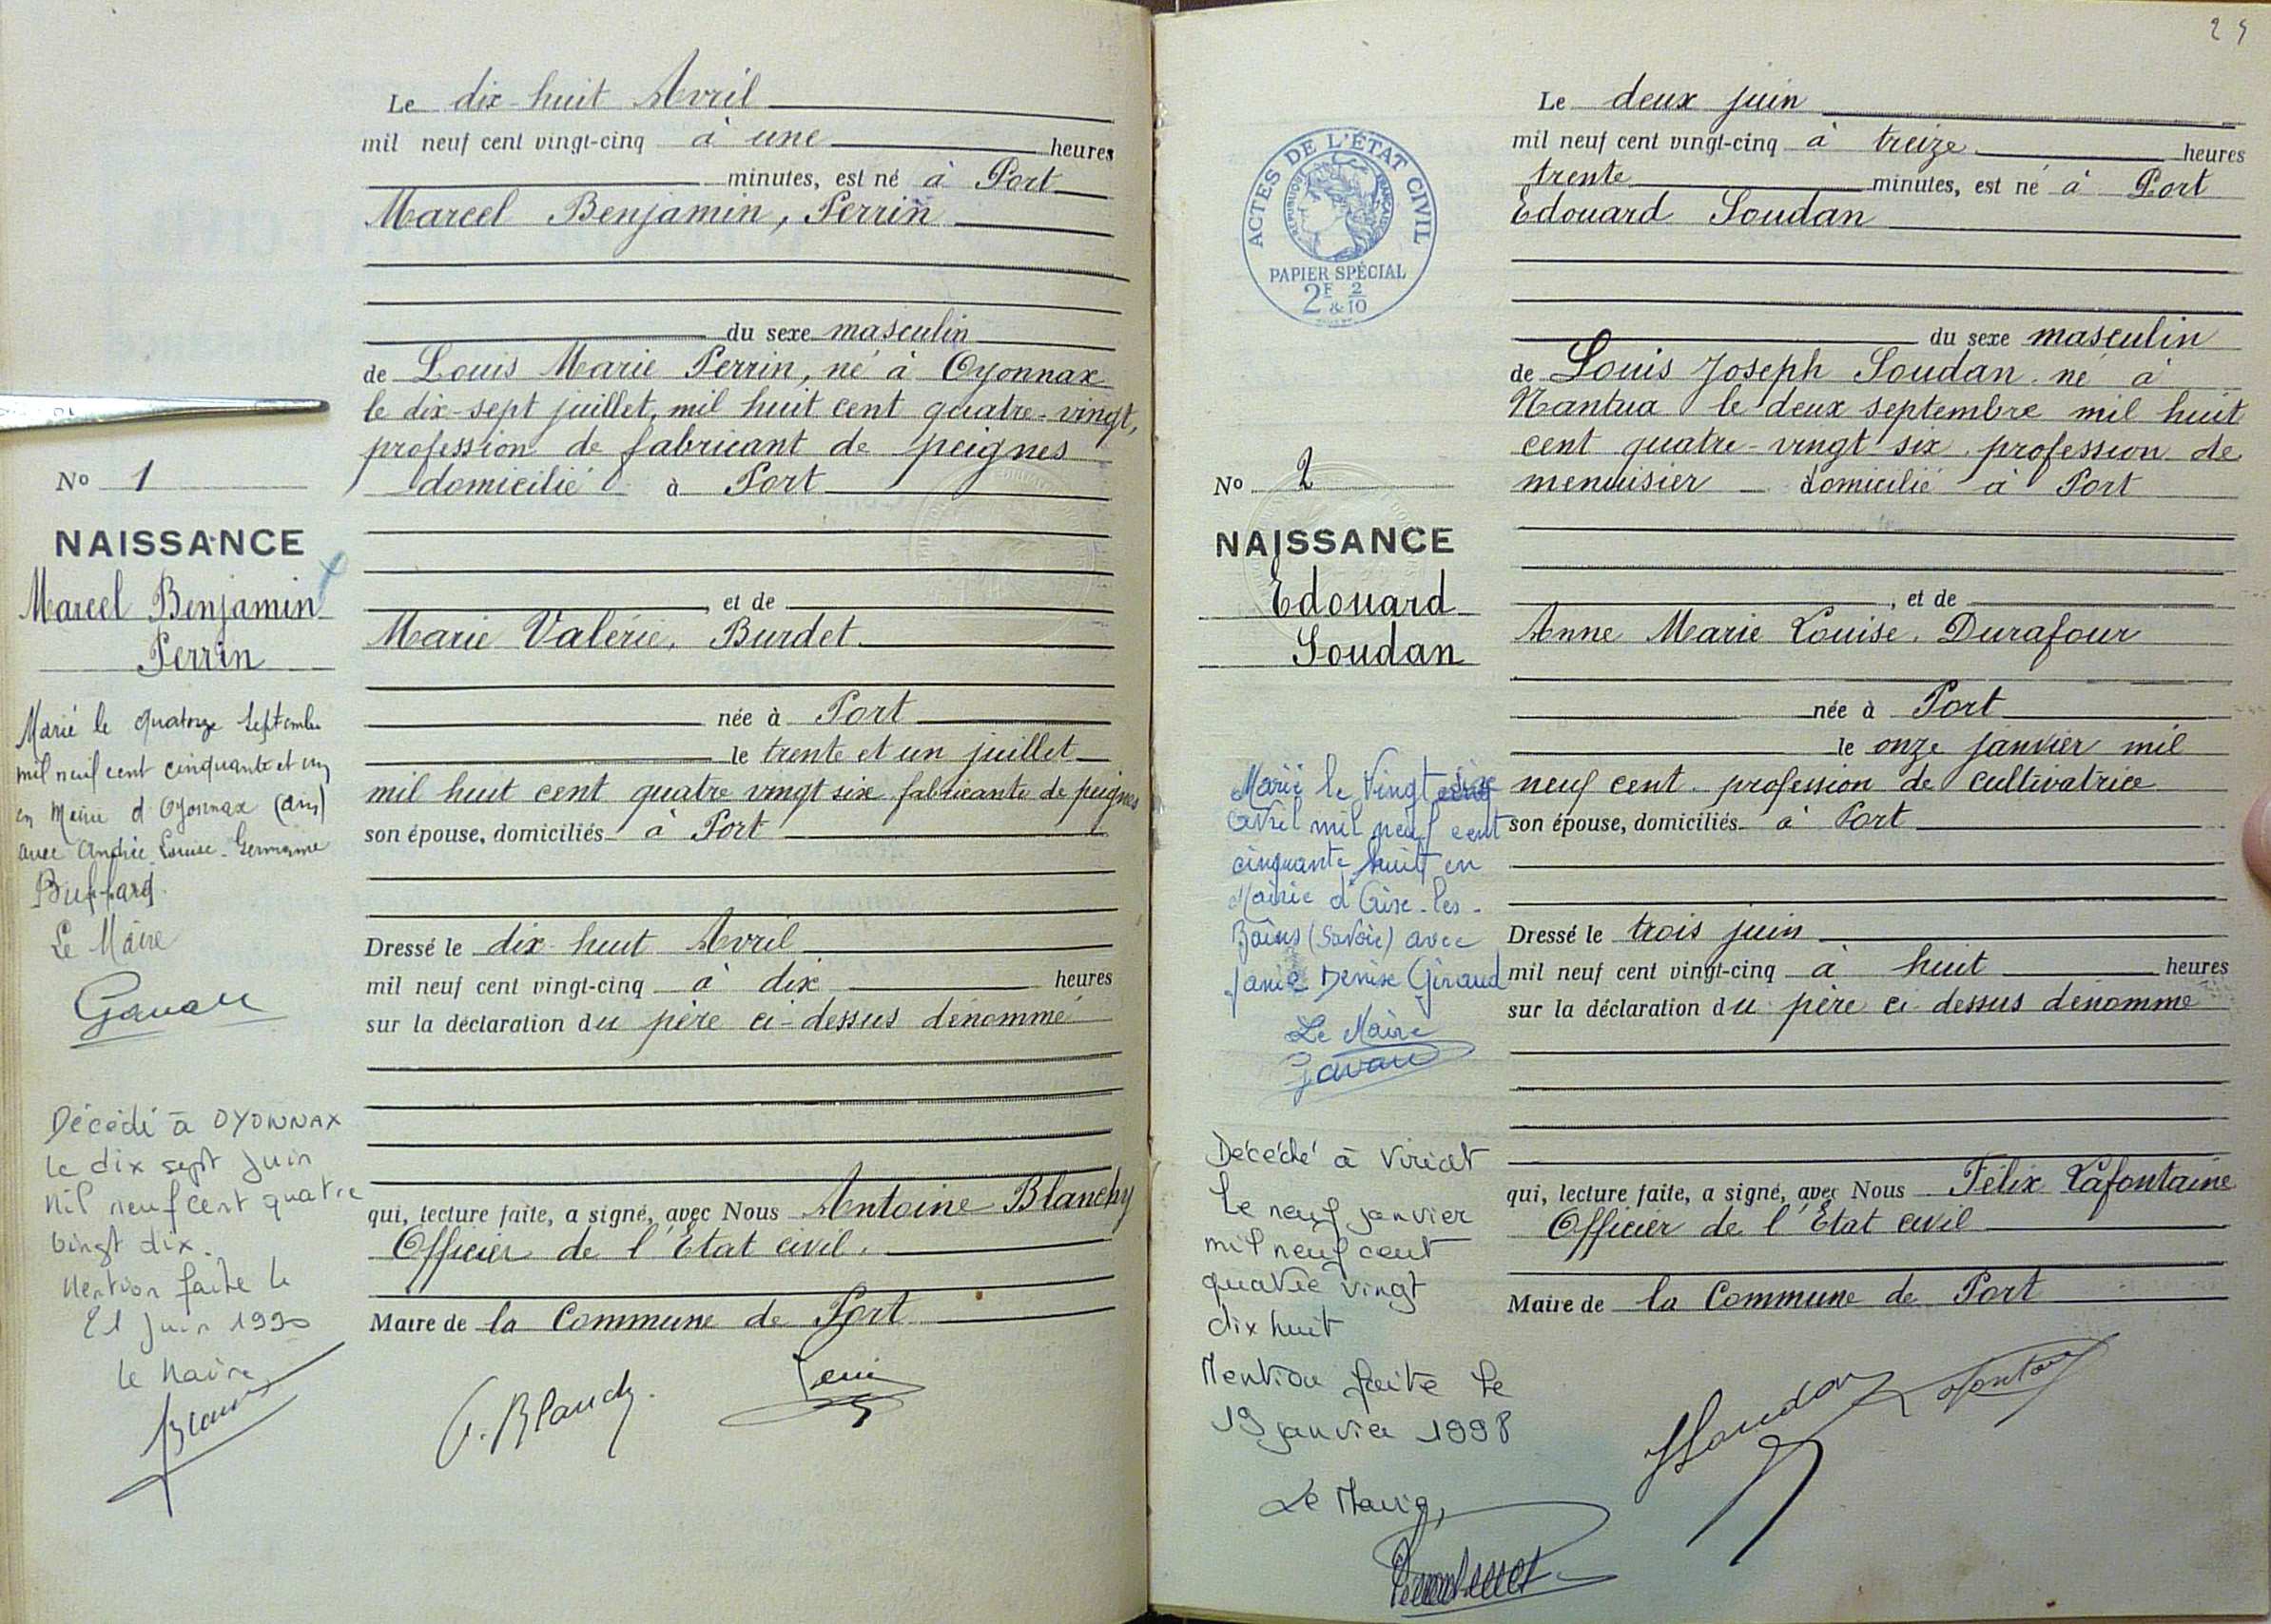 Le dix-huit Avril
mil neuf cent vingt-cinq à une heures
minutes, est né à Port
Marcel Benjamin, Perrin
du sexe masculin
de Louis Marie Perrin, né à Oyonnax
le dix-sept juillet, mil huit cent quatre-vingt,
profession de fabricant de peignes
domicilié à Port
, et de
Marie Valérie, Burdet
née à Port
le trente et un juillet
mil huit cent quatre vingt six fabricante de peignes
son épouse, domiciliés à Port
Dressé le dix-huit Avril
mil neuf cent vingt-cinq à dix heures
sur la déclaration du père ci-dessus dénommé
qui, lecture faite, a signé, avec Nous Antoine Blanchy
Officier de l'État civil.
Maire de la Commune de Port
No 1
NAISSANCE
Marcel Benjamin
Perrin
Marié le quatorze Septembre
mil neuf cent cinquante et un
en Mairie d'Oyonnax (Ain)
avec Andrée Louise Germaine
Le Maire
Gavan
Décédé à OYONNAX
le dix sept juin
mil neuf cent quatre
vingt dix.
Mention faite le
21 juin 1990
Le Maire
25
Le deux juin
mil neuf cent vingt-cinq à treize heures
trente minutes, est né à Port
Edouard Soudan
du sexe masculin
de Louis Joseph Soudan né à
Nantua le deux septembre mil huit
cent quatre-vingt six profession de
menuisier domicilié à Port
, et de
Anne Marie Louise, Durafour
née à Port
le onze janvier mil
neuf cent profession de cultivatrice
son épouse, domiciliés à Port
Dressé le trois juin
mil neuf cent vingt-cinq à huit heures
sur la déclaration du père ci dessus dénommé
qui, lecture faite, a signé, avec Nous Félix Lafontaine
Officier de l'État civil
Maire de la Commune de Port
ACTES DE L'ÉTAT CIVIL
RÉPUBLIQUE FRANÇAISE
PAPIER SPÉCIAL
2F & 2/10
No 2
NAISSANCE
Edouard
Soudan
Marié le Vingt six
Avril mil neuf cent
cinquante huit en
Mairie d'Aix-les-
Bains (Savoie) avec
Janie Denise Giraud
Le Maire
Gavan
Décédé à Viriat
Le neuf janvier
mil neuf cent
quatre vingt
dix huit
Mention faite le
19 janvier 1998
Le Maire,